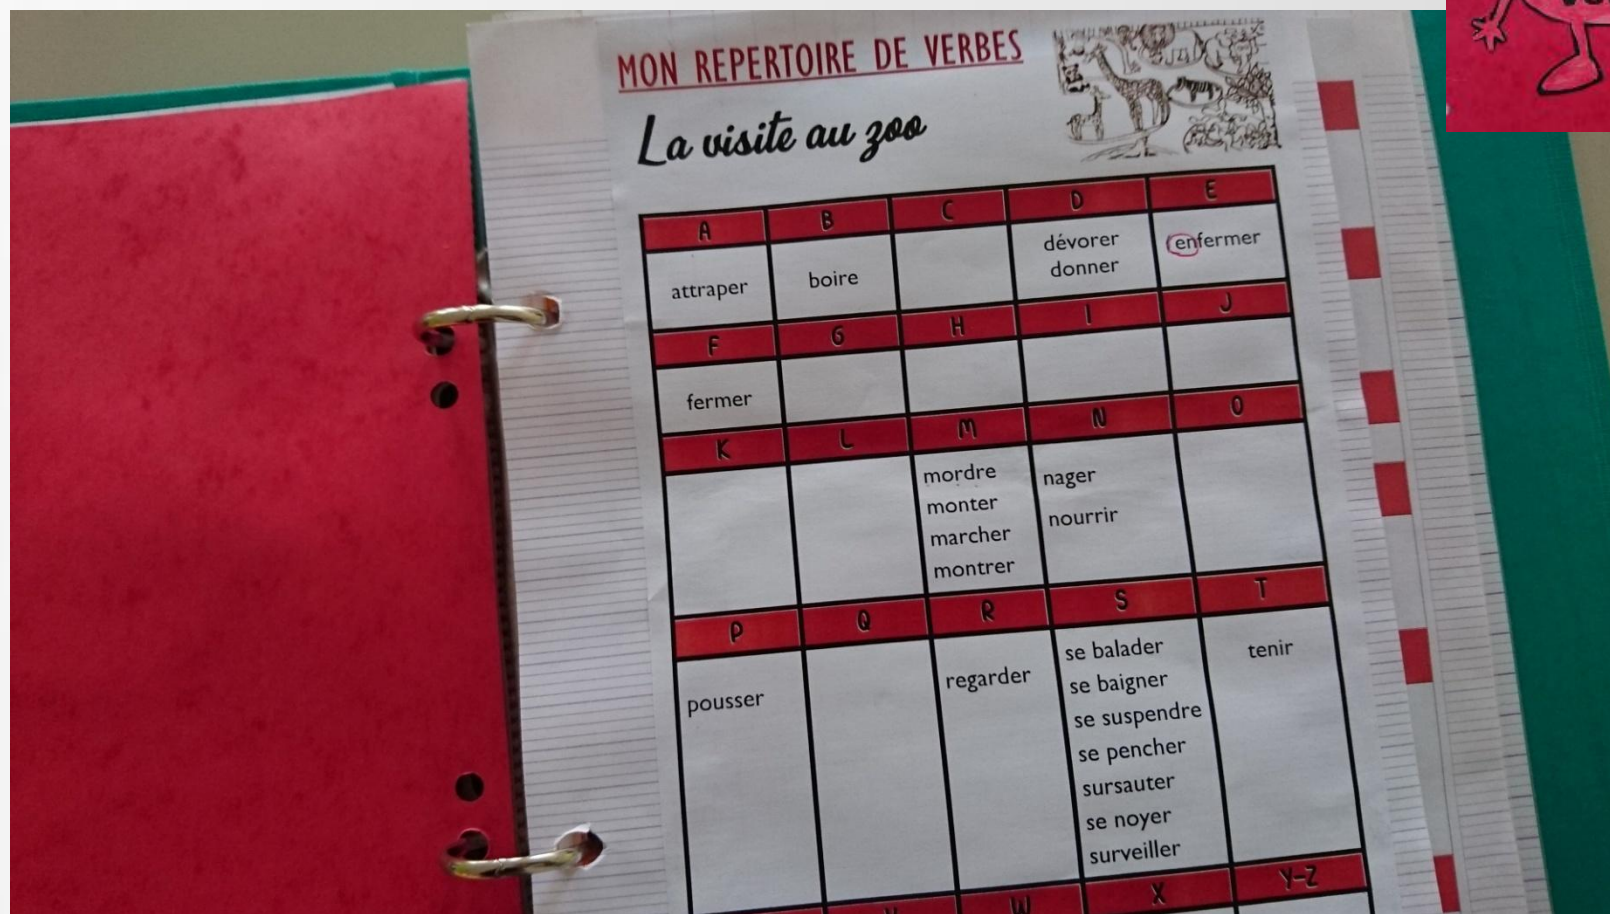 MON REPERTOIRE DE VERBES
La visite au zoo
A B C D E
attraper
boire
dévorer
donner
enfermer
F G H I J
fermer
K L M N O
mordre
monter
marcher
montrer
nager
nourrir
P Q R S T
pousser
regarder
se balader
se baigner
se suspendre
se pencher
sursauter
se noyer
surveiller
tenir
W X Y-Z